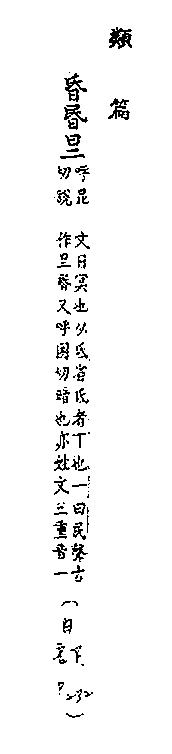 類篇
昏昬旦
呼昆切說
文日冥也从氐省氐者下也一曰民聲古
作旦昏又呼困切暗也亦姓文三重音一
(日部